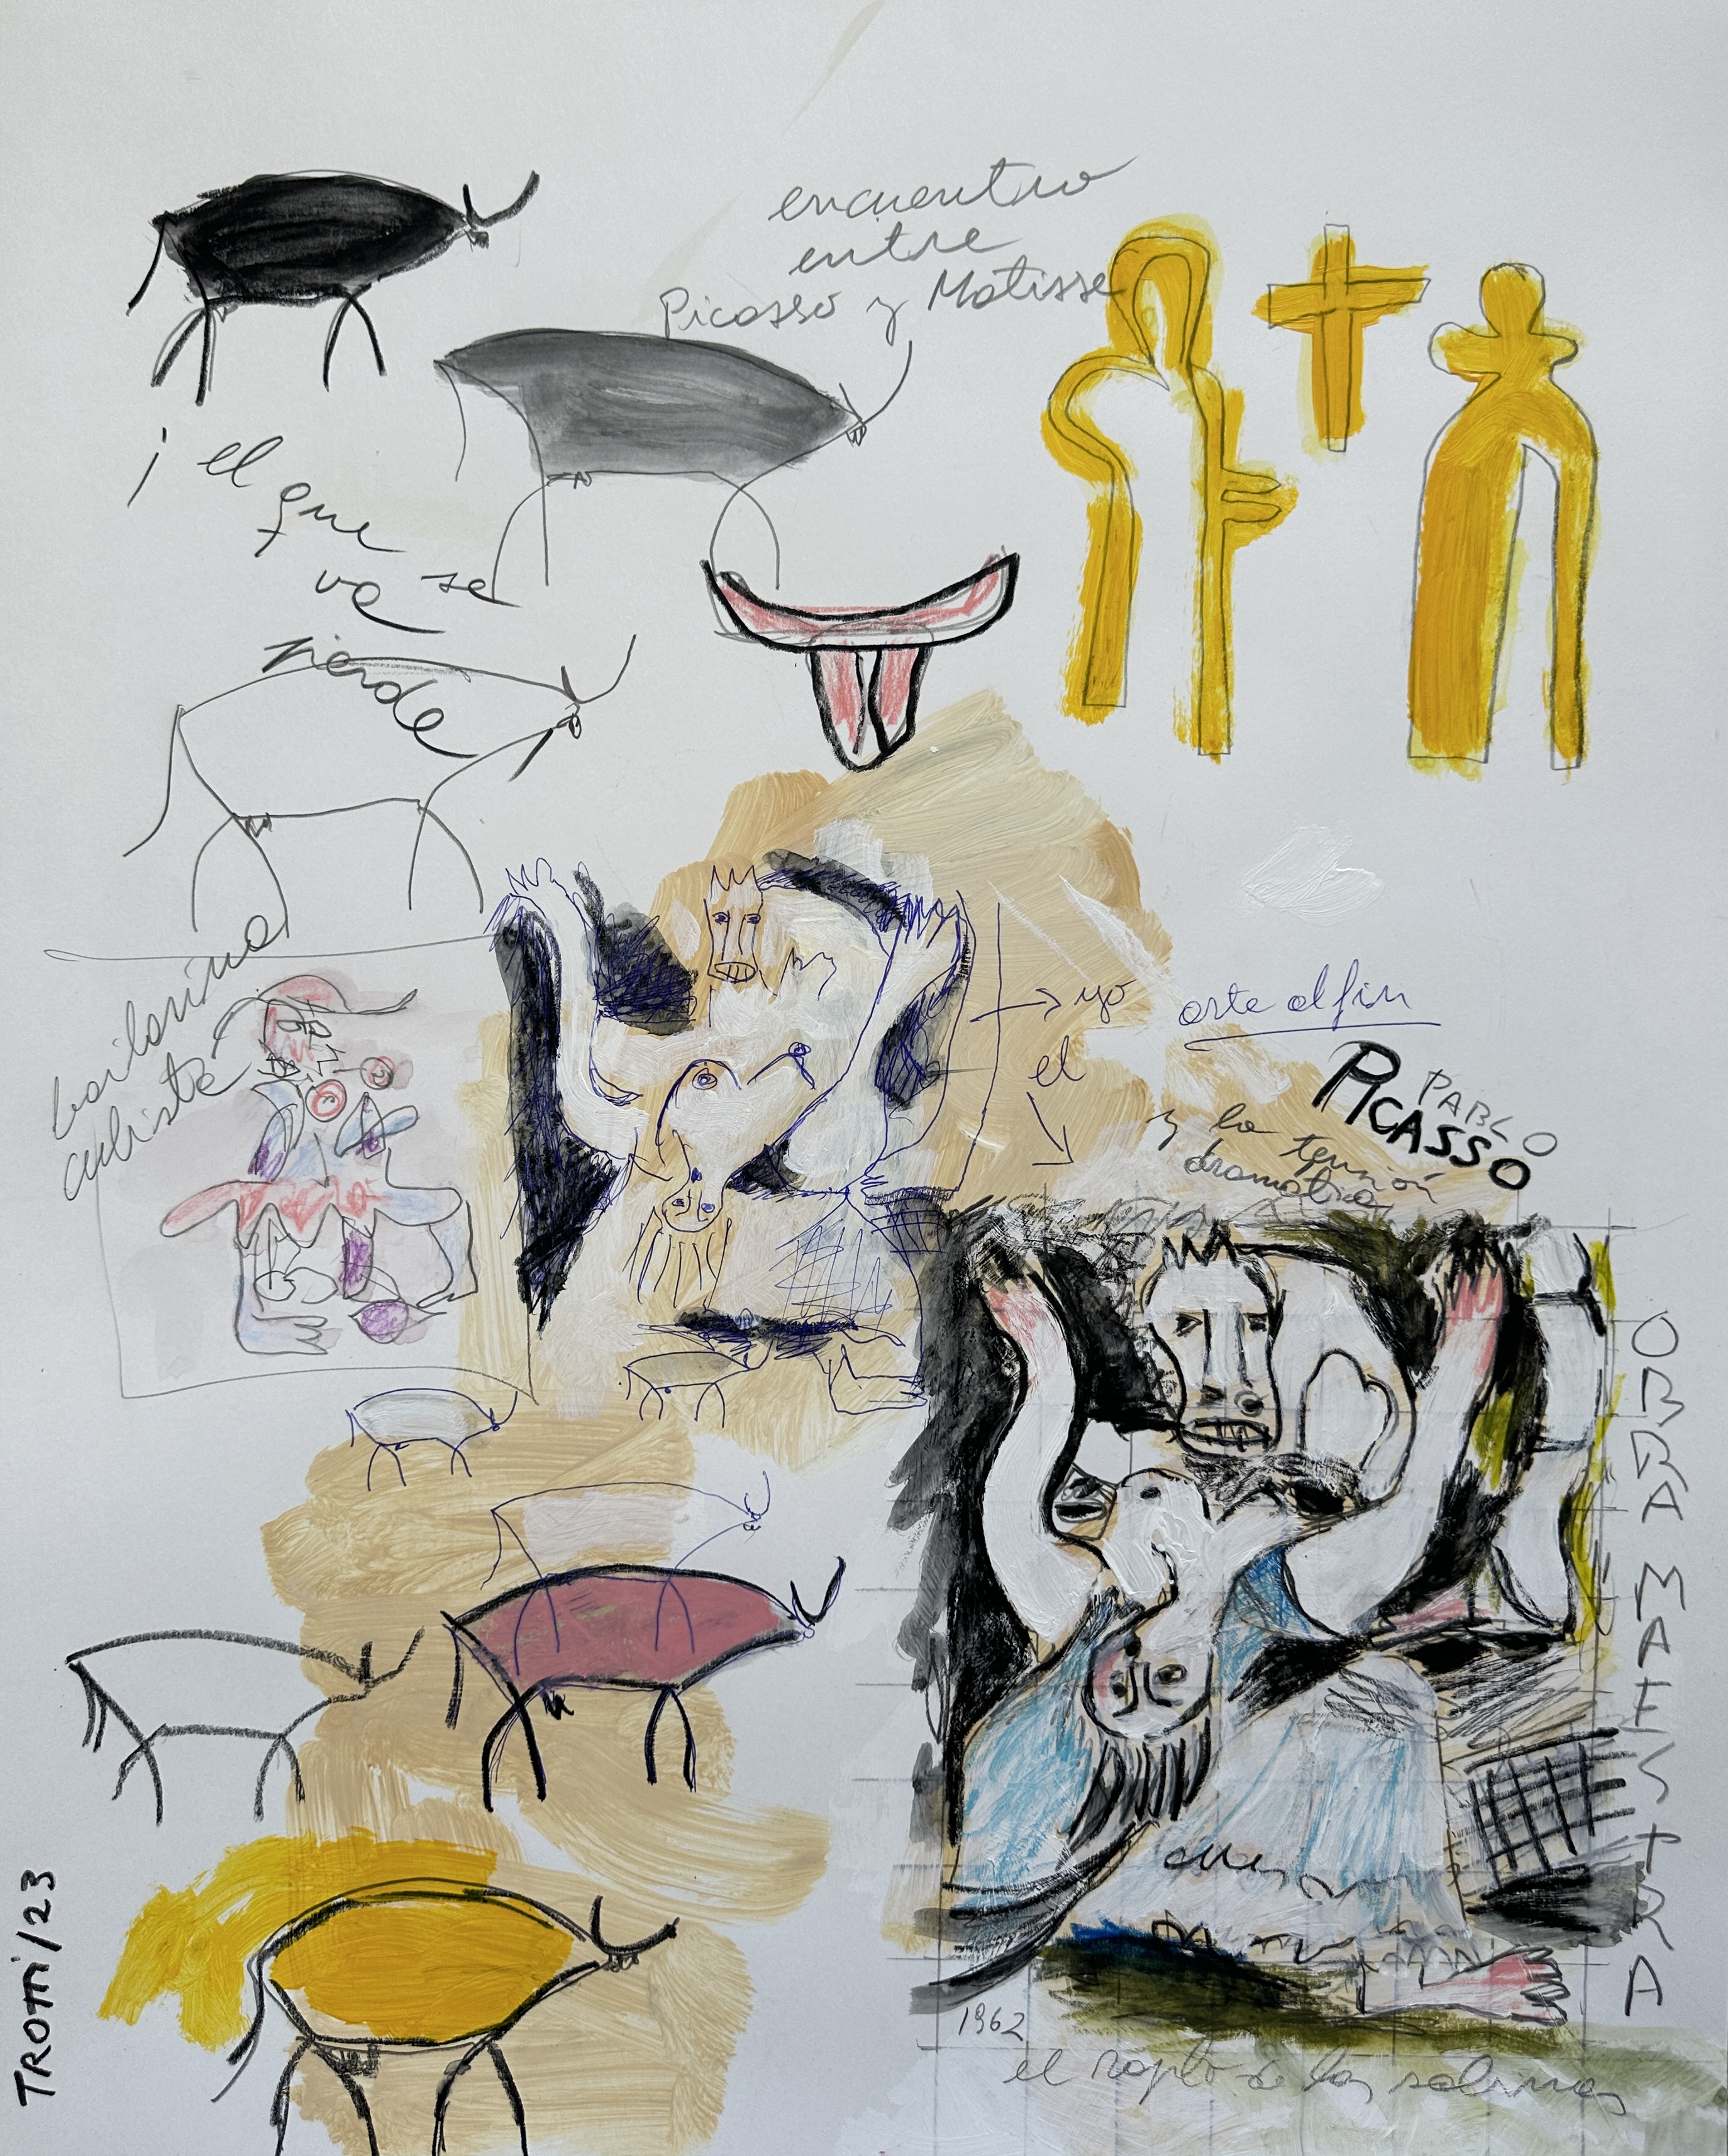 encuentro
entre
Picasso y Matisse
¡el que
va se
pierde
bailarina
cubista
→ yo
arte al fin
el
PABLO
PICASSO
y la tensión
dramática
OBRA MAESTRA
1962
el rapto de las sabinas
TROTTI/23